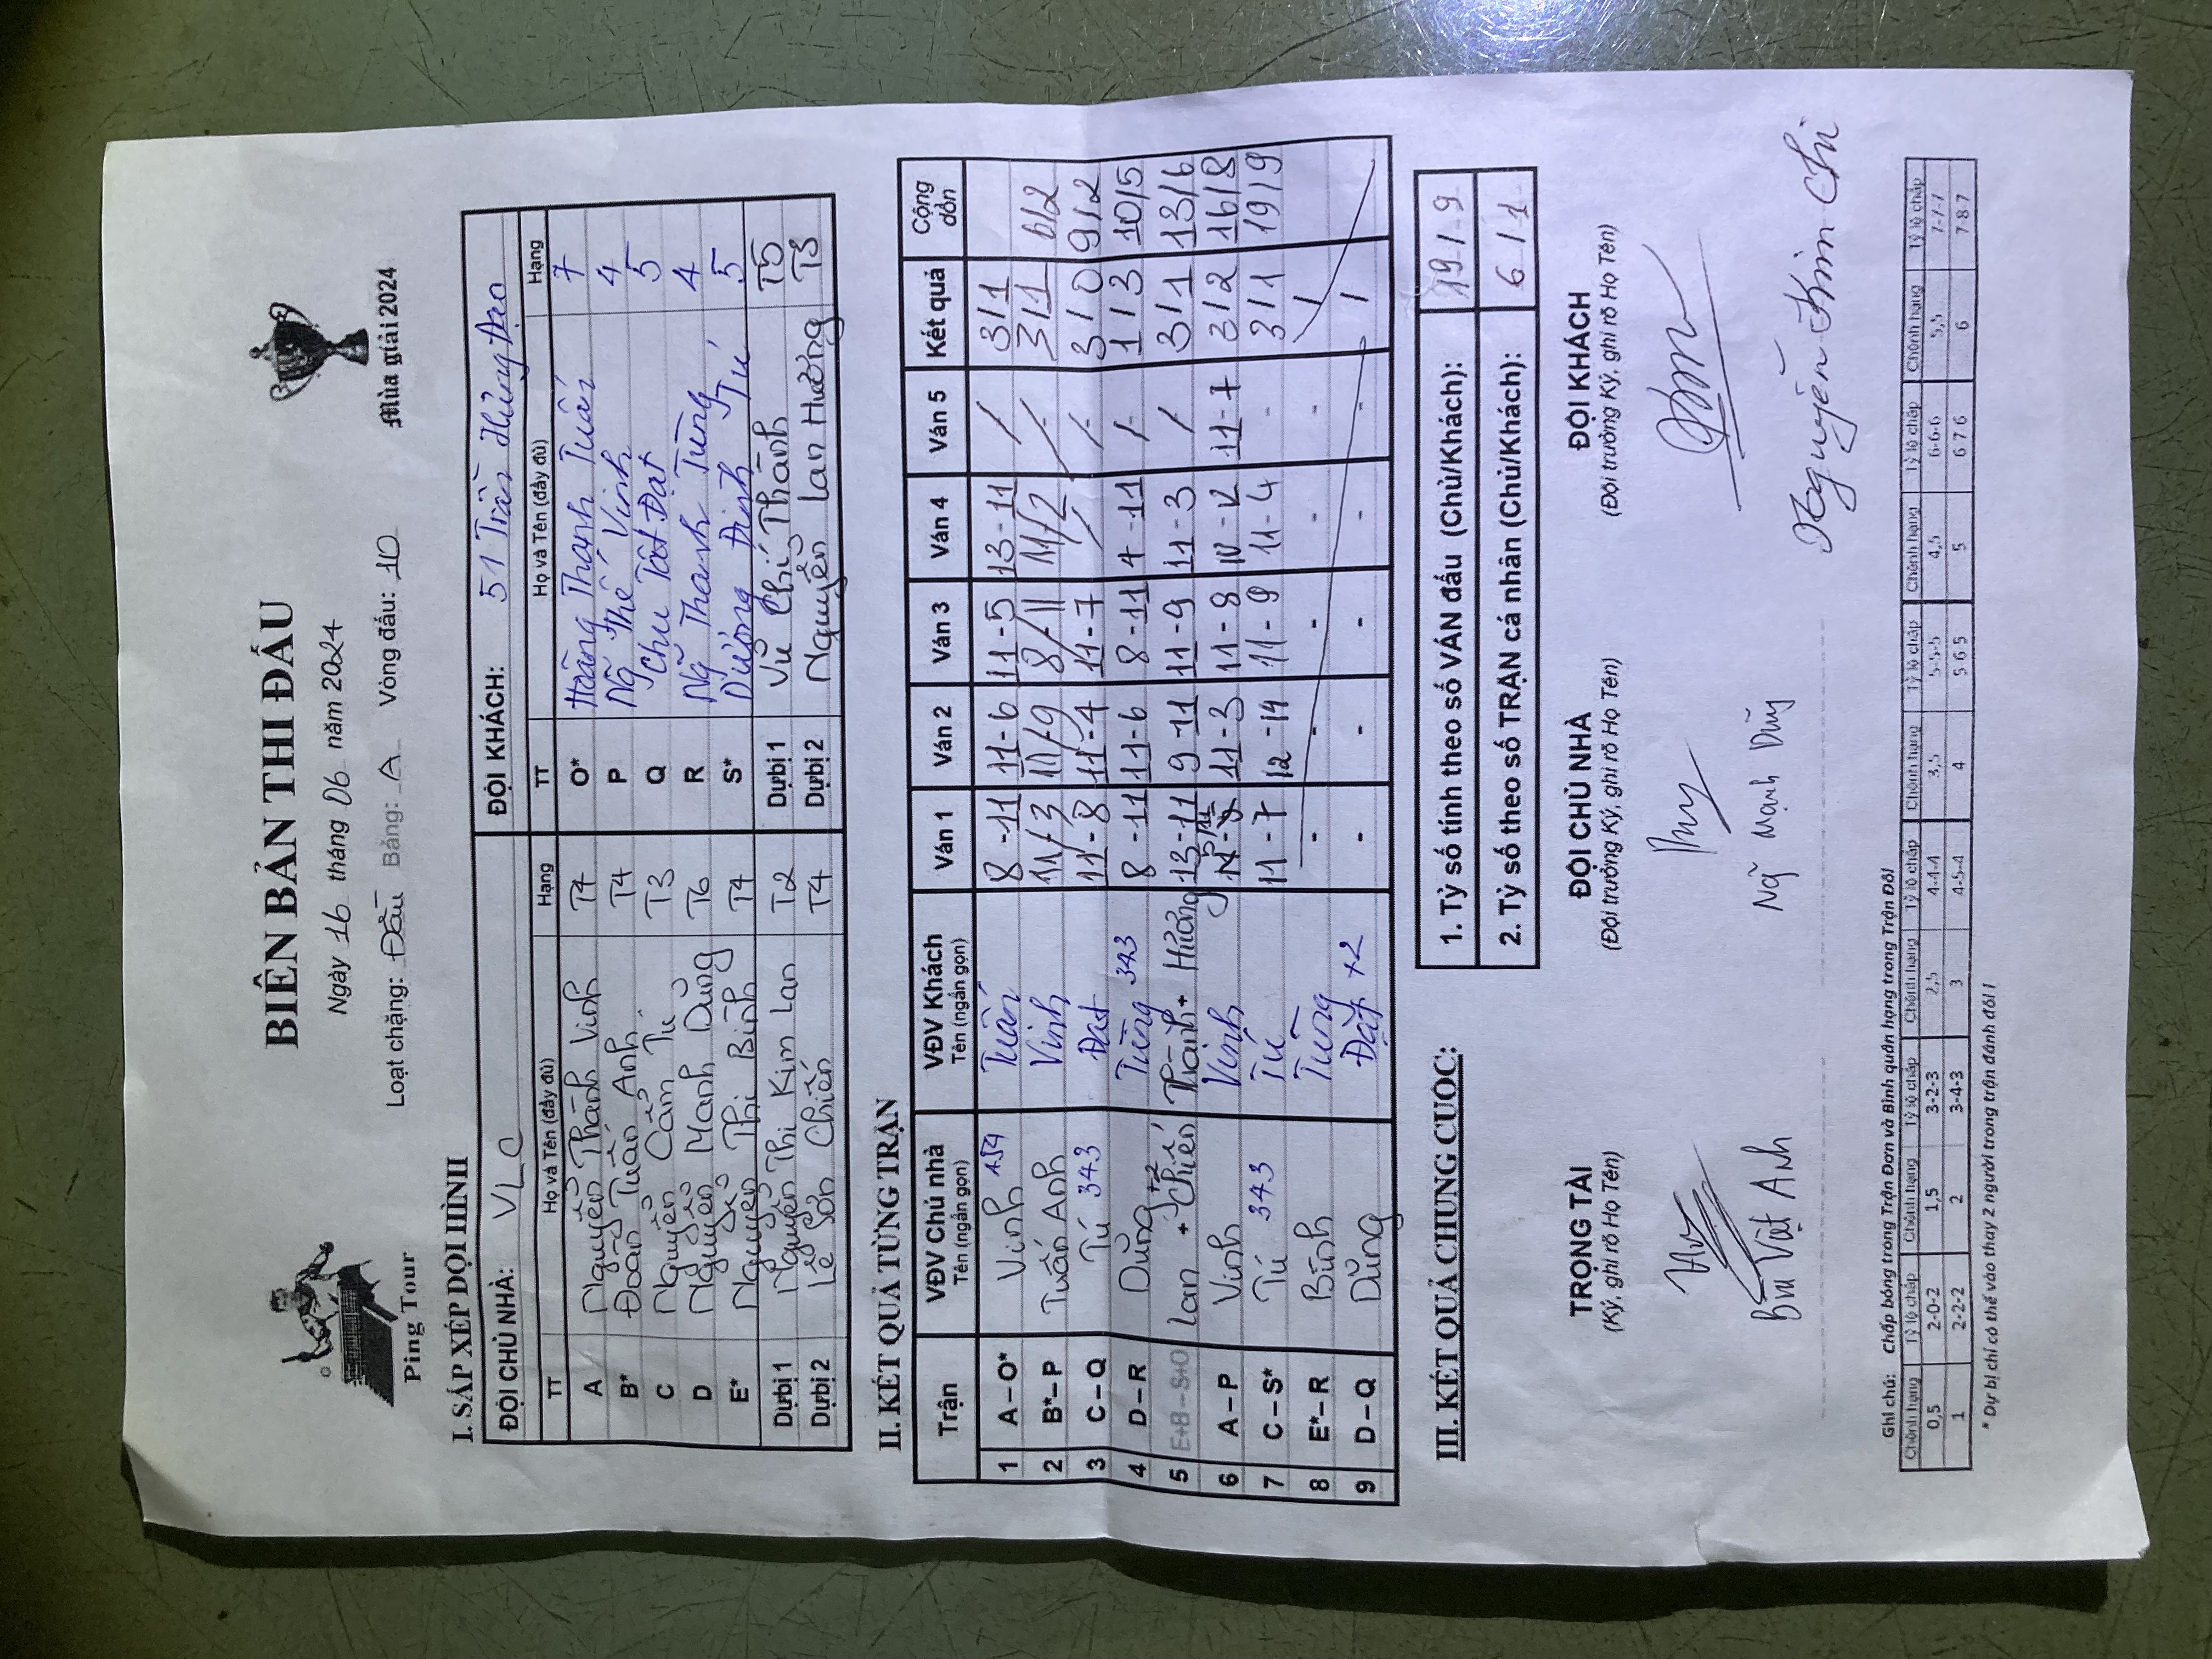 BIÊN BẢN THI ĐẤU
Ngày 16 tháng 06 năm 2024
Loạt chặng: Đầu Bảng: A Vòng đấu: 10
Ping Tour
Mùa giải 2024
I. SẮP XẾP ĐỘI HÌNH
ĐỘI CHỦ NHÀ: VLC ĐỘI KHÁCH: 51 Trần Hưng Đạo
TT Họ và Tên (đầy đủ) Hạng TT Họ và Tên (đầy đủ) Hạng
A Nguyễn Thành Vinh T4 O* Hoàng Thanh Tuấn 7
B* Đoàn Tuấn Anh T4 P Ng Thế Vinh 4
C Nguyễn Cẩm Tú T3 Q Chu Tất Đạt 5
D Nguyễn Mạnh Dũng T6 R Ng Thanh Tùng 4
E* Nguyễn Thị Bình T4 S* Dương Đình Tú 5
Dự bị 1 Nguyễn Thị Kim Lan T2 Dự bị 1 Vũ Chí Thành T5
Dự bị 2 Lê Sơn Chiến T4 Dự bị 2 Nguyễn Lan Hương T3
II. KẾT QUẢ TỪNG TRẬN
Trận VĐV Chủ nhà VĐV Khách Ván 1 Ván 2 Ván 3 Ván 4 Ván 5 Kết quả Cộng dồn
Tên (ngắn gọn) Tên (ngắn gọn)
1 A – O* Vinh 454 Tuấn 8 - 11 11 - 6 11 - 5 13 - 11 / 3/1
2 B* – P Tuấn Anh Vinh 11/-3 11/-9 8/-11 11/-2 / 3/1 6/2
3 C – Q Tú 343 Đạt 11 - 8 11 - 4 11 - 7 - / 3/0 9/2
4 D – R Dũng +2 Tùng 343 8 - 11 11 - 6 8 - 11 4 - 11 / 1/3 10/5
5 E+B – S+O Lan + Chiến Thành + Hương 13 - 11 9 - 11 11 - 9 11 - 3 / 3/1 13/6
6 A – P Vinh Vinh 11 - 3 11 - 8 10 - 12 11 - 7 3/2 16/8
7 C – S* Tú 343 Tú 11 - 7 12 - 14 11 - 9 11 - 4 - 3/1 19/9
8 E* – R Bình Tùng - - - - - /
9 D – Q Dũng Đạt +2 - - - - - /
III. KẾT QUẢ CHUNG CUỘC:
1. Tỷ số tính theo số VÁN đấu (Chủ/Khách): 19 / 9
2. Tỷ số theo số TRẬN cá nhân (Chủ/Khách): 6 / 1
TRỌNG TÀI ĐỘI CHỦ NHÀ ĐỘI KHÁCH
(Ký, ghi rõ Họ Tên) (Đội trưởng Ký, ghi rõ Họ Tên) (Đội trưởng Ký, ghi rõ Họ Tên)
Bùi Việt Anh Ng Mạnh Dũng Nguyễn Kim Chi
Ghi chú: Chấp bóng trong Trận Đơn và Bình quân hạng trong Trận Đôi
Chênh hạng Tỷ lệ chấp Chênh hạng Tỷ lệ chấp Chênh hạng Tỷ lệ chấp Chênh hạng Tỷ lệ chấp Chênh hạng Tỷ lệ chấp Chênh hạng Tỷ lệ chấp
0,5 2-0-2 1,5 3-2-3 2,5 4-4-4 3,5 5-5-5 4,5 6-6-6 5,5 7-7-7
1 2-2-2 2 3-4-3 3 4-5-4 4 5 6 5 5 6 7 6 6 7-8-7
* Dự bị chỉ có thể vào thay 2 người trong trận đánh đôi !